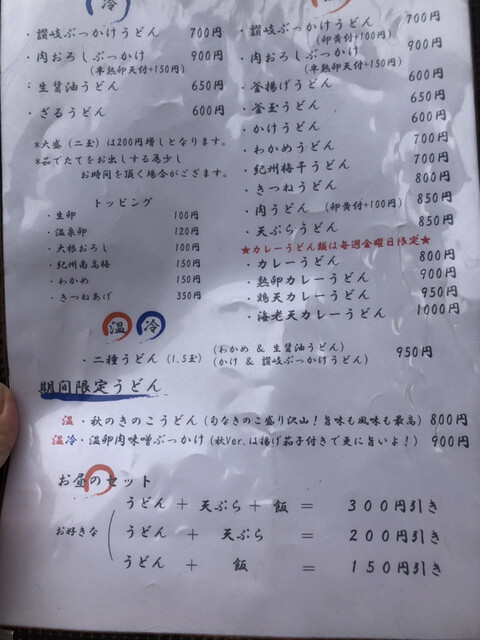 冷
・讃岐ぶっかけうどん 700円
・肉おろしぶっかけ 900円
(半熟卵天付+150円)
・生醤油うどん 650円
・ざるうどん 600円
*大盛(二玉)は200円増しとなります。
*茹でたてをお出しする為少し
お時間を頂く場合がございます。
トッピング
・生卵 100円
・温泉卵 120円
・大根おろし 100円
・紀州南高梅 150円
・わかめ 150円
・きつねあげ 350円
・讃岐ぶっかけうどん 700円
(卵黄付+100円)
・肉おろしぶっかけ 900円
(半熟卵天付+150円)
・釜揚げうどん 600円
・釜玉うどん 650円
・かけうどん 600円
・わかめうどん 700円
・紀州梅干うどん 700円
・きつねうどん 800円
・肉うどん (卵黄付+100円) 850円
・天ぷらうどん 850円
★カレーうどん類は毎週金曜日限定★
・カレーうどん 800円
・熟卵カレーうどん 900円
・鶏天カレーうどん 950円
・海老天カレーうどん 1000円
温 冷
・二種うどん (1.5玉) (わかめ & 生醤油うどん) 950円
(かけ & 讃岐ぶっかけうどん)
期間限定うどん
温・秋のきのこうどん (旬なきのこ盛り沢山!旨味も風味も最高) 800円
温冷・温卵肉味噌ぶっかけ (秋Ver.は揚げ茄子付きで更に旨いよ!) 900円
お昼のセット
お好きな
うどん + 天ぷら + 飯 = 300円引き
うどん + 天ぷら = 200円引き
うどん + 飯 = 150円引き